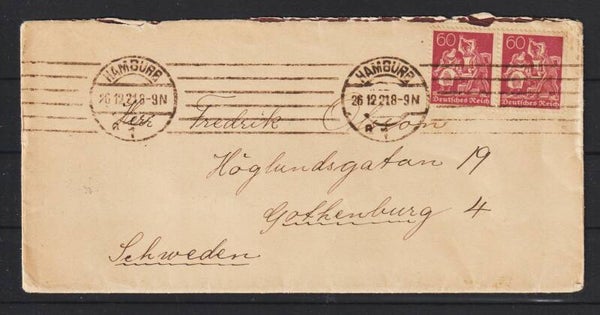 60 60
Deutsches Reich Deutsches Reich
HAMBURG HAMBURG
26.12.21.8-9N 26.12.21.8-9N
1 1
Herr Fredrik
Höglundsgatan 19
Gothenburg 4
Schweden